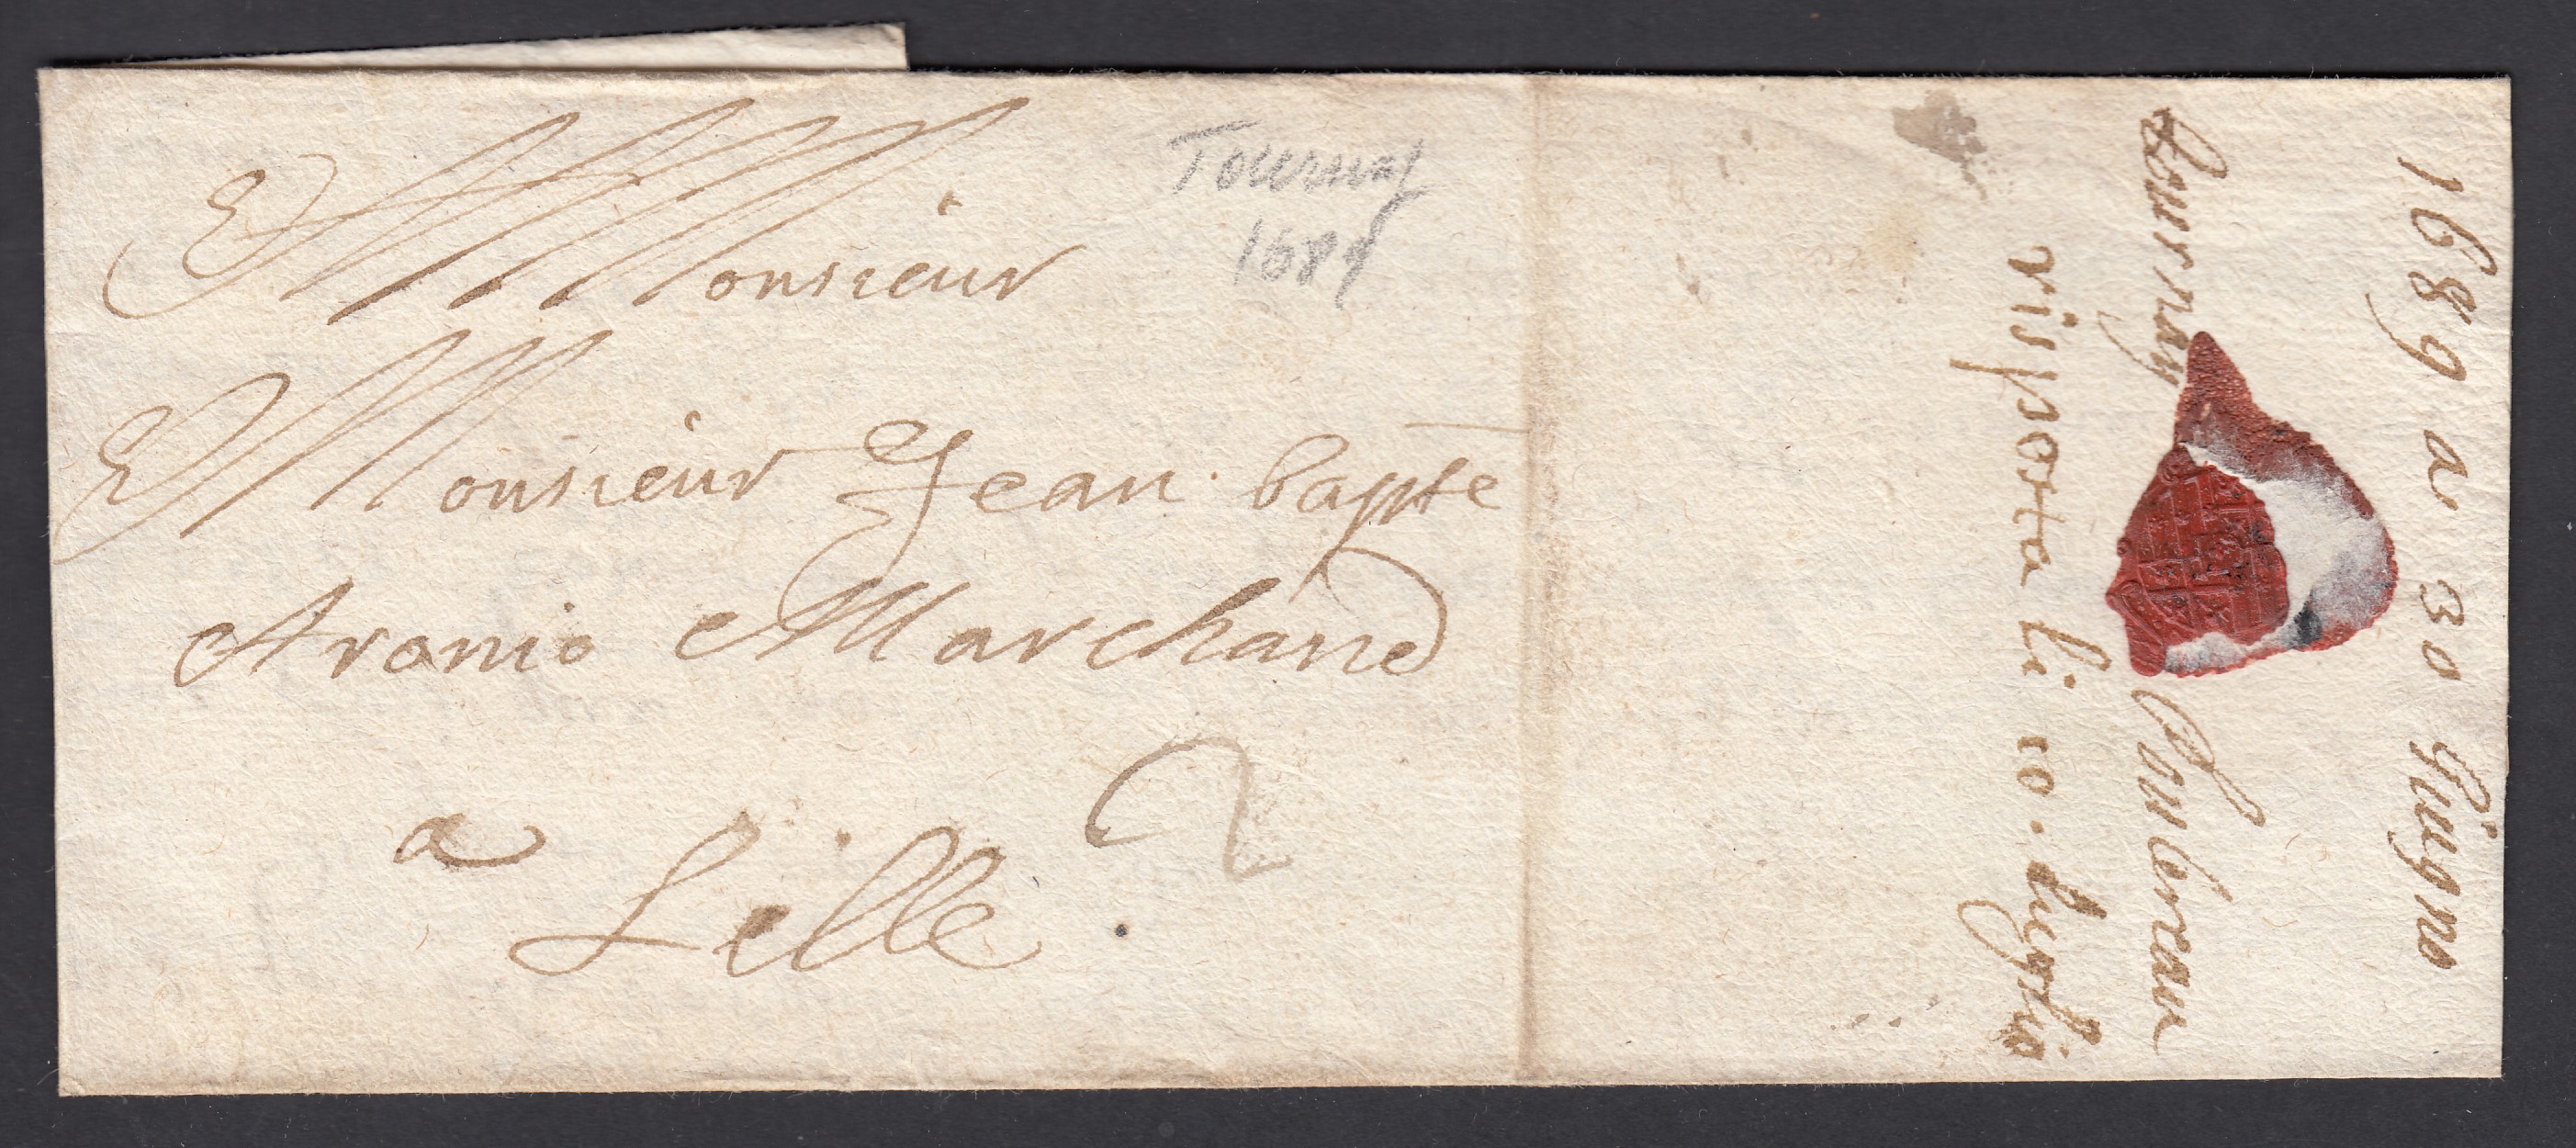 Monsieur
Monsieur Jean bapte
Aronio Marchand
a
Lille
2
Tournay
1689
1689 a 30 Giugno
tournay
risposta li 10. luglio